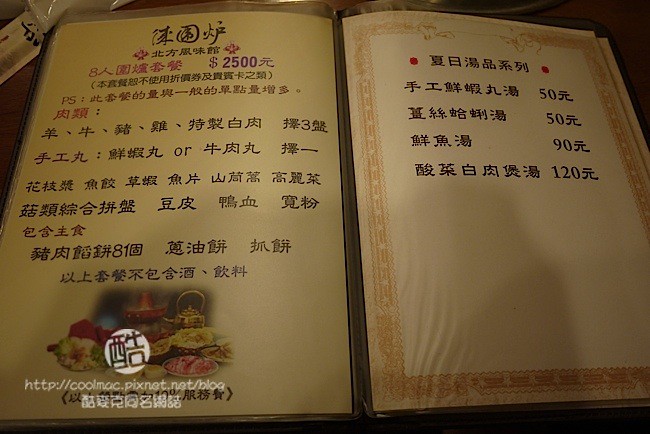 陳圍炉
北方風味館
8人圍爐套餐 $2500元
(本套餐恕不使用折價券及貴賓卡之類)
PS：此套餐的量與一般的單點量增多。
肉類：
羊、牛、豬、雞、特製白肉 擇3盤
手工丸：鮮蝦丸 or 牛肉丸 擇一
花枝漿 魚餃 草蝦 魚片 山茼蒿 高麗菜
菇類綜合拼盤 豆皮 鴨血 寬粉
包含主食
豬肉餡餅81個 蔥油餅 抓餅
以上套餐不包含酒、飲料
酷
http://coolmac.pixnet.net/blog
10%服務費》
夏日湯品系列
手工鮮蝦丸湯 50元
薑絲蛤蜊湯 50元
鮮魚湯 90元
酸菜白肉煲湯 120元